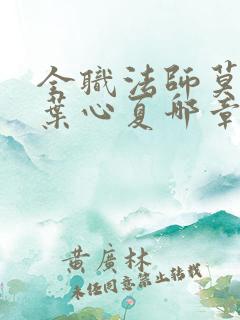 全職法師莫
葉心夏哪章
黃廣林
未經同意禁止转载